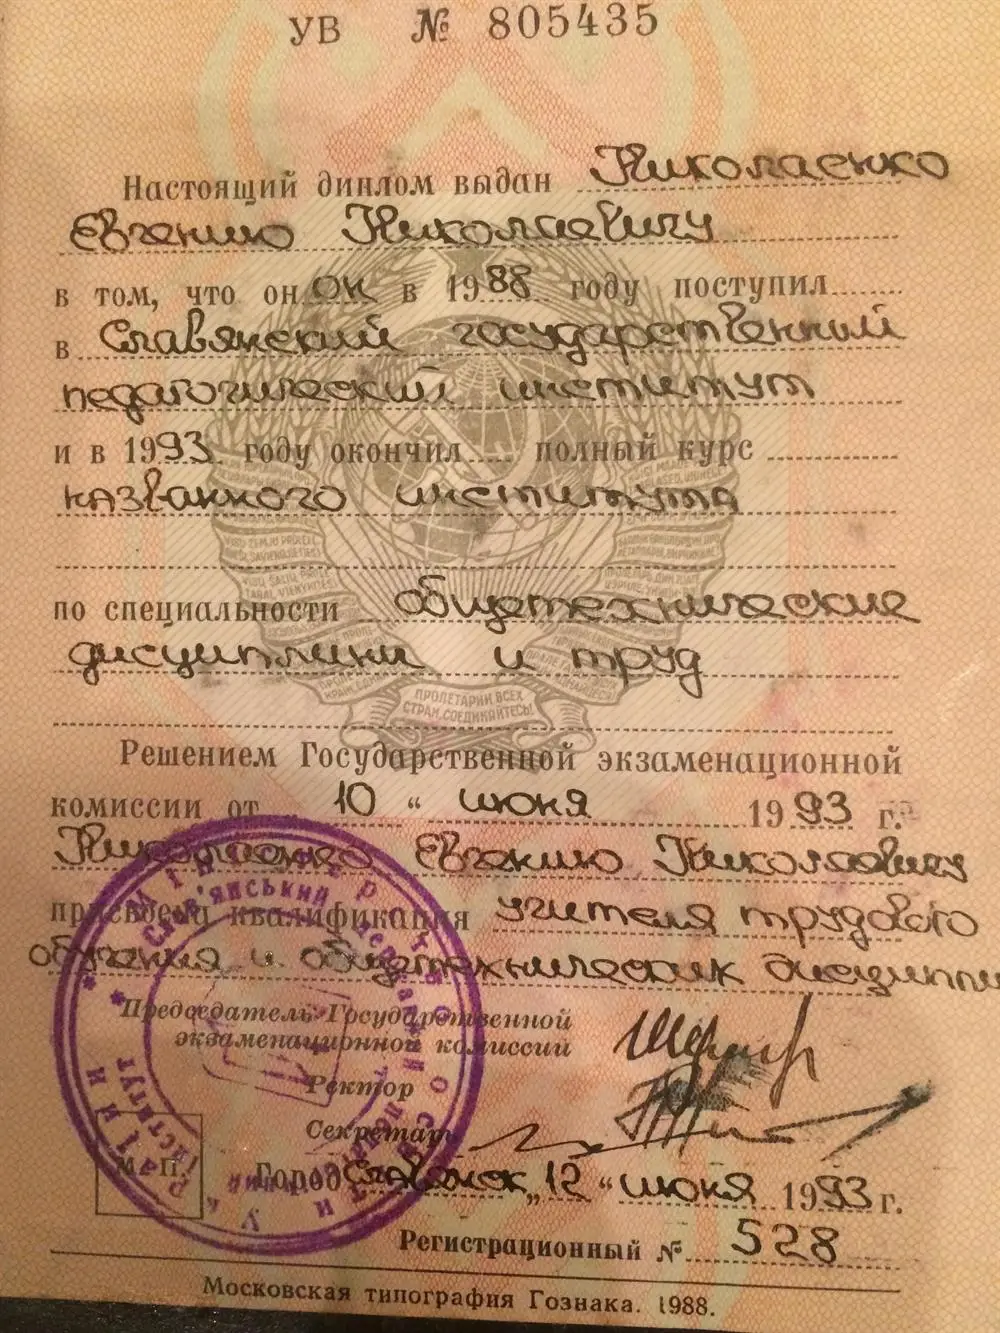 УВ № 805435
Настоящий диплом выдан Николаенко
Евгению Николаевичу
в том, что он он в 1988 году поступил
в Славянский государственный
педагогический институт
и в 1993 году окончил полный курс
названного института
по специальности общетехнические
дисциплины и труд
ПРОЛЕТАРИИ ВСЕХ
СТРАН, СОЕДИНЯЙТЕСЬ!
Решением Государственной экзаменационной
комиссии от „ 10 “ июня 1993 г.
Николаенко Евгению Николаевичу
присвоена квалификация учителя трудового
обучения и общетехнических дисциплин
Председатель Государственной
экзаменационной комиссии
Ректор
Секретарь
М. П.
Город Славянск „ 12 “ июня 1993 г.
Регистрационный № 528
Московская типография Гознака. 1988.